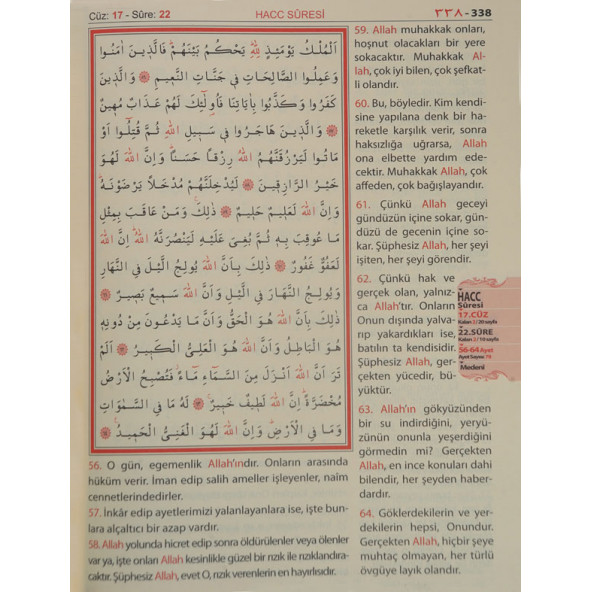 Cüz: 17 - Sûre: 22
HACC SÛRESİ
٣٣٨ - 338
اَلْمُلْكُ يَوْمَئِذٍ لِلّٰهِۜ يَحْكُمُ بَيْنَهُمْۜ فَالَّذٖينَ اٰمَنُوا
وَعَمِلُوا الصَّالِحَاتِ فٖي جَنَّاتِ النَّعٖيمِ ۞ وَالَّذٖينَ
كَفَرُوا وَكَذَّبُوا بِاٰيَاتِنَا فَاُو۬لٰٓئِكَ لَهُمْ عَذَابٌ مُهٖينٌ
۞ وَالَّذٖينَ هَاجَرُوا فٖي سَبٖيلِ اللّٰهِ ثُمَّ قُتِلُٓوا اَوْ
مَاتُوا لَيَرْزُقَنَّهُمُ اللّٰهُ رِزْقًا حَسَنًاۜ وَاِنَّ اللّٰهَ لَهُوَ
خَيْرُ الرَّازِقٖينَ ۞ لَيُدْخِلَنَّهُمْ مُدْخَلًا يَرْضَوْنَهُۜ
وَاِنَّ اللّٰهَ لَعَلٖيمٌ حَلٖيمٌ ۞ ذٰلِكَۚ وَمَنْ عَاقَبَ بِمِثْلِ
مَا عُوقِبَ بِهٖ ثُمَّ بُغِيَ عَلَيْهِ لَيَنْصُرَنَّهُ اللّٰهُۜ اِنَّ اللّٰهَ
لَعَفُوٌّ غَفُورٌ ۞ ذٰلِكَ بِاَنَّ اللّٰهَ يُولِجُ الَّيْلَ فِي النَّهَارِ
وَيُولِجُ النَّهَارَ فِي الَّيْلِ وَاَنَّ اللّٰهَ سَمٖيعٌ بَصٖيرٌ ۞
ذٰلِكَ بِاَنَّ اللّٰهَ هُوَ الْحَقُّ وَاَنَّ مَا يَدْعُونَ مِنْ دُونِهٖ
هُوَ الْبَاطِلُ وَاَنَّ اللّٰهَ هُوَ الْعَلِيُّ الْكَبٖيرُ ۞ اَلَمْ
تَرَ اَنَّ اللّٰهَ اَنْزَلَ مِنَ السَّمَٓاءِ مَٓاءًۘ فَتُصْبِحُ الْاَرْضُ
مُخْضَرَّةًۜ اِنَّ اللّٰهَ لَطٖيفٌ خَبٖيرٌۚ ۞ لَهُ مَا فِي السَّمٰوَاتِ
وَمَا فِي الْاَرْضِۜ وَاِنَّ اللّٰهَ لَهُوَ الْغَنِيُّ الْحَمٖيدُ۟ ۞
56. O gün, egemenlik Allah'ındır. Onların arasında
hüküm verir. İman edip salih ameller işleyenler, naîm
cennetlerindedirler.
57. İnkâr edip ayetlerimizi yalanlayanlara ise, işte bun-
lara alçaltıcı bir azap vardır.
58. Allah yolunda hicret edip sonra öldürülenler veya ölenler
var ya, işte onları Allah kesinlikle güzel bir rızık ile rızıklandıra-
caktır. Şüphesiz Allah, evet O, rızık verenlerin en hayırlısıdır.
59. Allah muhakkak onları,
hoşnut olacakları bir yere
sokacaktır. Muhakkak Al-
lah, çok iyi bilen, çok şefkat-
li olandır.
60. Bu, böyledir. Kim kendi-
sine yapılana denk bir ha-
reketle karşılık verir, sonra
haksızlığa uğrarsa, Allah
ona elbette yardım ede-
cektir. Muhakkak Allah, çok
affeden, çok bağışlayandır.
61. Çünkü Allah geceyi
gündüzün içine sokar, gün-
düzü de gecenin içine so-
kar. Şüphesiz Allah, her şeyi
işiten, her şeyi görendir.
62. Çünkü hak ve
gerçek olan, yalnız-
ca Allah'tır. Onların
Onun dışında yalva-
rıp yakardıkları ise,
batılın ta kendisidir.
Şüphesiz Allah, ger-
çekten yücedir, bü-
yüktür.
63. Allah'ın gökyüzünden
bir su indirdiğini, yeryü-
zünün onunla yeşerdiğini
görmedin mi? Gerçekten
Allah, en ince konuları dahi
bilendir, her şeyden haber-
dardır.
64. Göklerdekilerin ve yer-
dekilerin hepsi, Onundur.
Gerçekten Allah, hiçbir şeye
muhtaç olmayan, her türlü
övgüye layık olandır.
HACC
Sûresi
17.CÜZ
Kalan 3 / 20 sayfa
22.SÛRE
56-64 Ayet
Ayet Sayısı: 78
Medenî